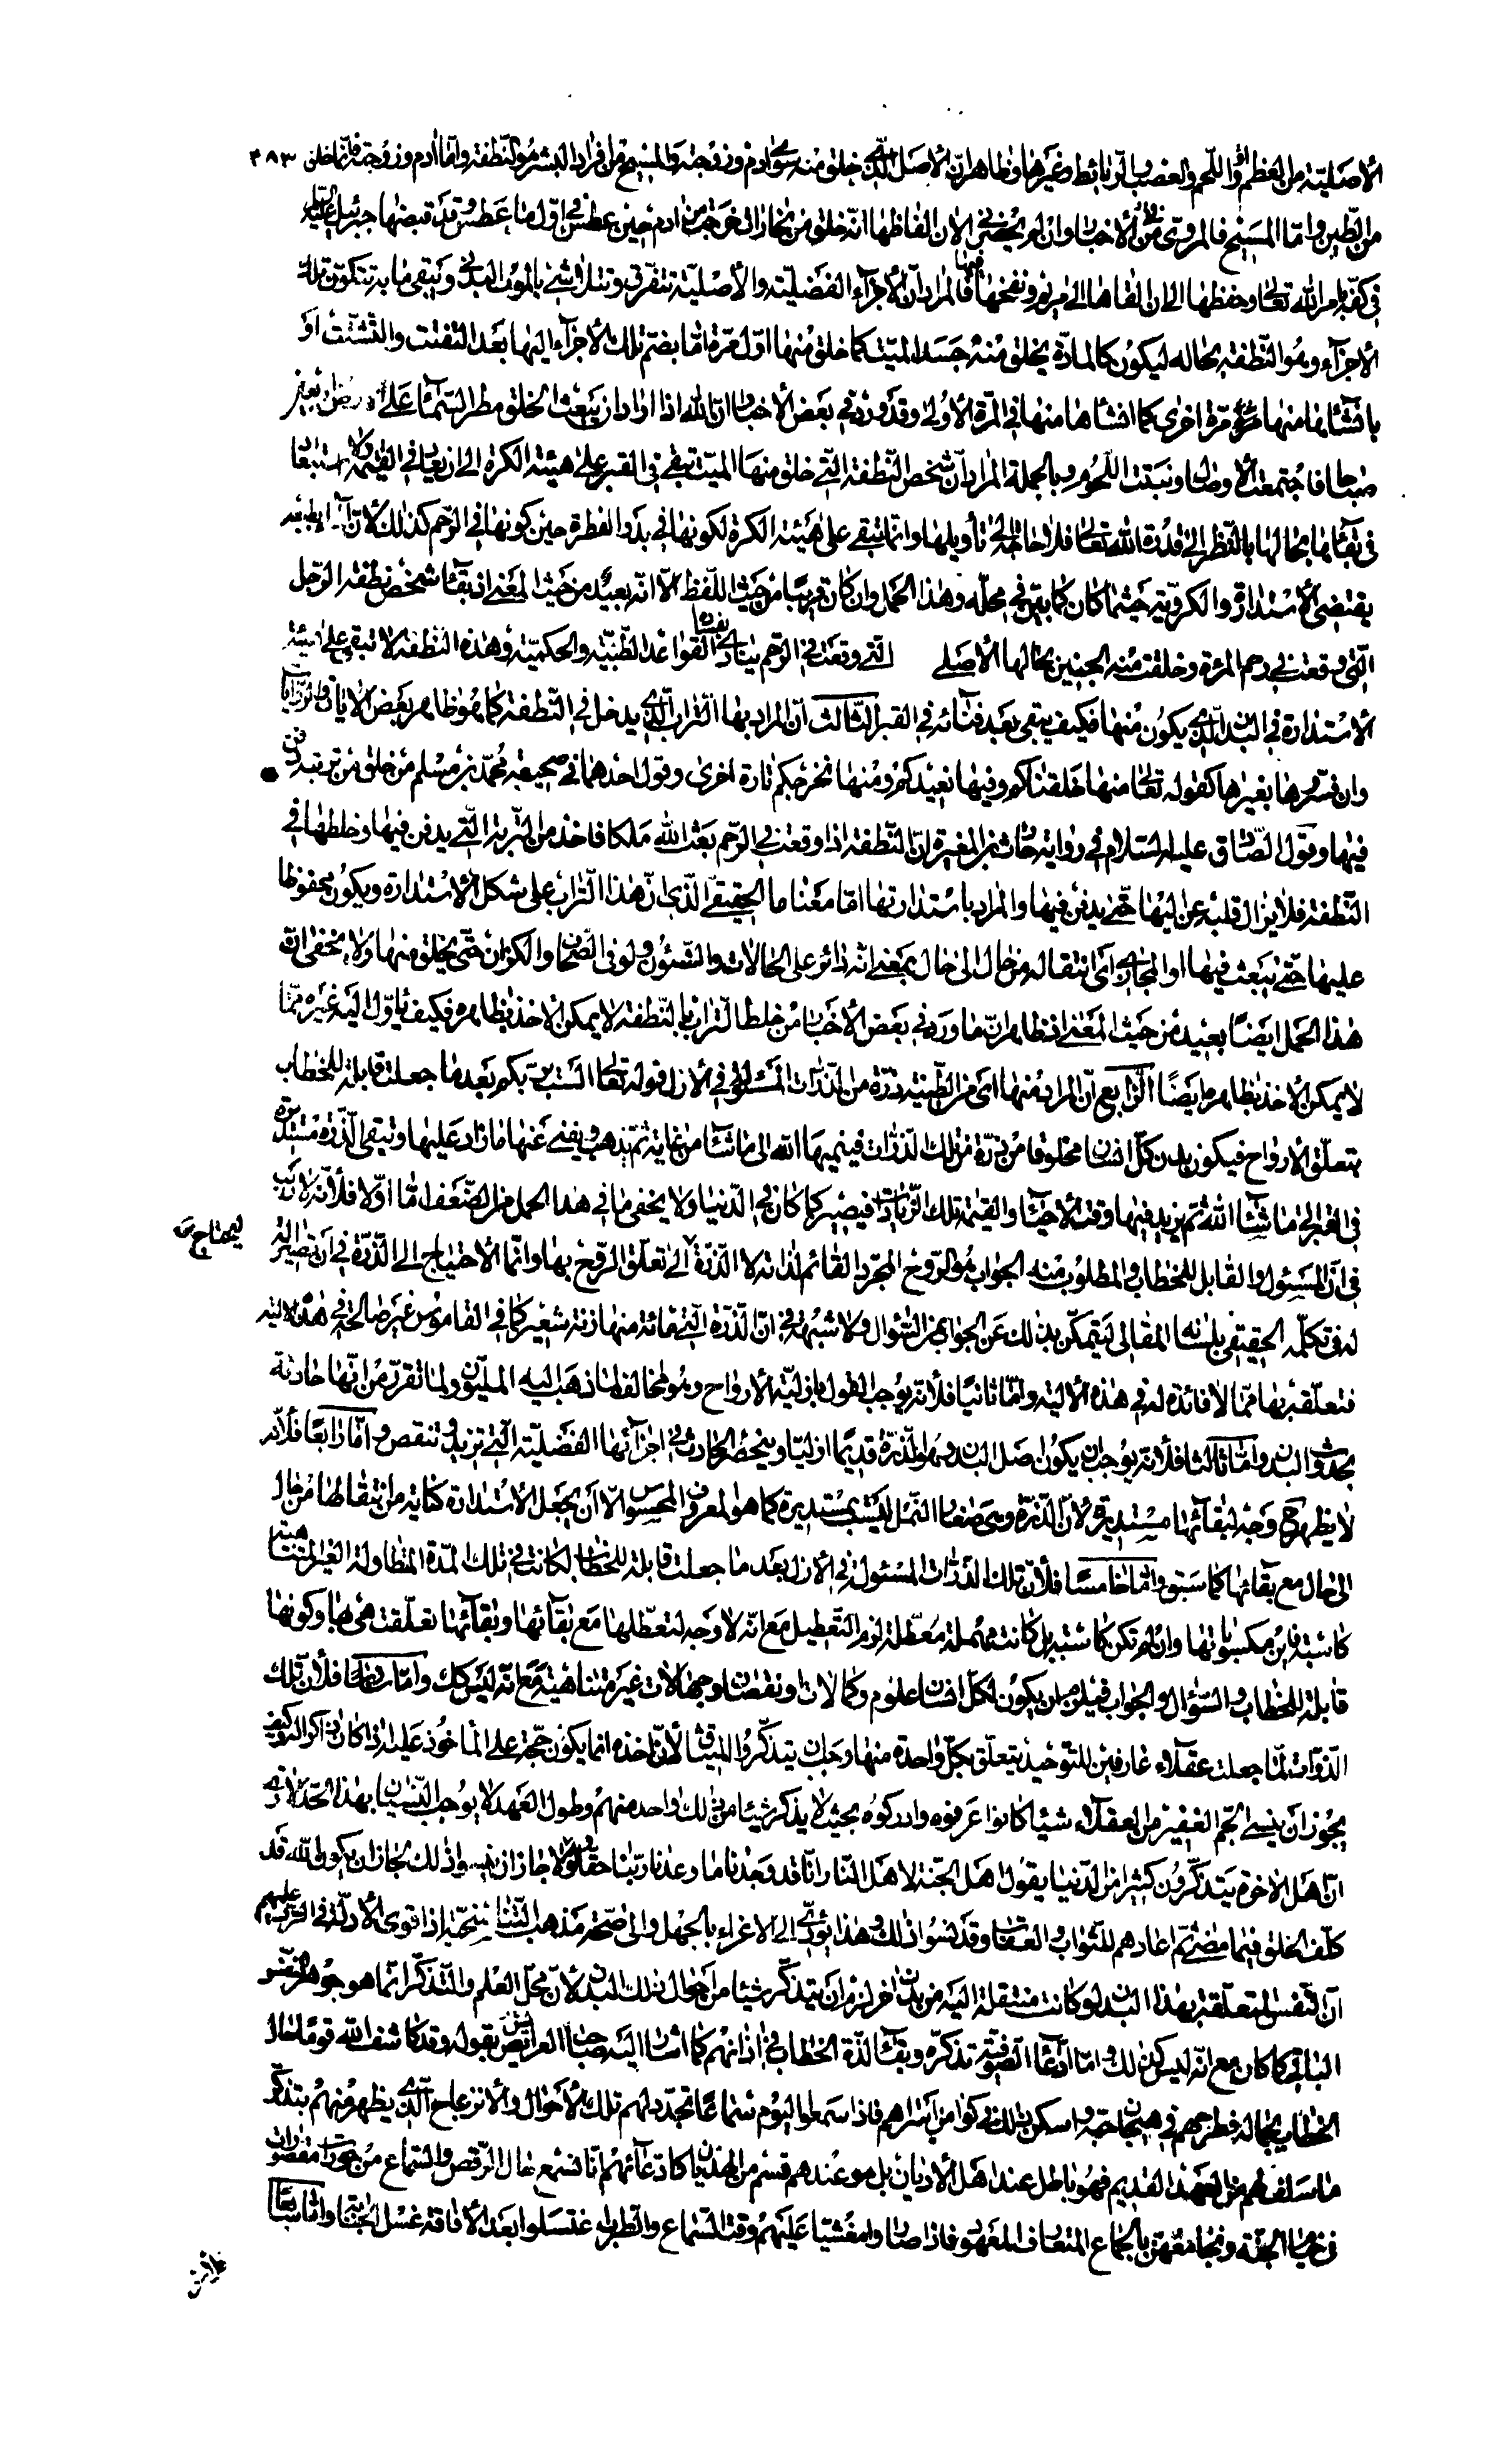 الأصلية من العظم واللحم والعصب والرباط وغيرها وظاهر ان الأصل الذي خلق منه سوى ادم وزوجته والمسيح من افراد البشر هو النطفة واما ادم وزوجته فانما خلق ٣٨٣
من الطين واما المسيح فالمروي في الأخبار وان لم يحضرني الان الفاظها انه خلق من بخارات خرجت من ادم حين عطس في اول ما عطس وقد قبضها جبرئيل
في كفه بامر الله تعالى وحفظها الى ان القاها الى مريم ونفخها فيها فالمراد ان الأجزاء الفضلية والأصلية تتفرق وتتلاشى بالموت والبلى ويبقى ما به تتكون تلك
الأجزاء وهو النطفة بحاله ليكون كالمادة يخلق منه جسد الميت كما خلق منها اول مرة اما بضم تلك الأجزاء اليها بعد التفتت والتشتت او
بانشائها منها مرة اخرى كما انشاها منها في المرة الأولى وقد ورد في بعض الأخبار ان الله اذا اراد ان يبعث الخلق مطر السماء على الأرض اربعين
صباحا فاجتمعت الأوصال ونبتت اللحوم وبالجملة المراد ان شخص النطفة التي خلق منها الميت تبقى في القبر على هيئة الكرة الى ان يعاد في القيمة ولا استبعاد
في بقائها بحالها بالنظر الى قدرة الله تعالى فلا حاجة الى تأويلها وانما تبقى على هيئة الكرة لكونها في بدو الفطرة حين كونها في الرحم كذلك لأن
يقتضى الأستدارة والكروية حيثما كان كما بين في محله وهذا الحمل وان كان قريبا من حيث اللفظ الا انه بعيد من حيث المعنى اذ بقاء شخص نطفة الرجل
التي وقعت في رحم المرئة وخلقت منه الجنين بحالها الأصلي التي وقعت في الرحم ينادي بفساده القواعد الطبية والحكمية وهذه النطفة لا تبقى على هيئة
الأستدارة في البدن الذي يكون منها فكيف يبقى بعد فنائه في القبر الثالث ان المراد بها التراب الذي يدخل في النطفة كما هو ظاهر بعض الايات والروايات
وان فسرها بغيرها كقوله تعالى منها خلقناكم وفيها نعيدكم ومنها نخرجكم تارة اخرى وقول احدهما في صحيحة محمد بن مسلم من خلق من تربة دفن
فيها وقول الصادق عليه السلام في رواية حارث بن المغيرة ان النطفة اذا وقعت في الرحم بعث الله ملكا فاخذ من التربة التي يدفن فيها وخلطها في
النطفة فلا يزال قلبه يحن اليها حتى يدفن فيها والمراد باستدارتها اما معناها الحقيقي الذي ان هذا التراب على شكل الأستدارة ويكون محفوظا
عليها حتى يبعث فيها او المجازي اي انتقاله من حال الى حال بمعنى انه دائر على الحالات والشئون ولو في الصحاف والكيزان حتى يخلق منها ولا يخفى ان
هذا الحمل ايضا بعيد من حيث المعنى اذ ظاهر ان ما ورد في بعض الأخبار من خلط التراب بالنطفة لا يمكن الأخذ بظاهره فكيف يأول اليه غيره مما
لا يمكن الأخذ بظاهره ايضا الرابع ان المراد منها اي من الطينة ذرة من الذرات المسئولة في الأزل قوله تعالى الست بربكم بعد ما جعلت قابلة للخطاب
بتعلق الأرواح فيكون بدن كل انسان مخلوقا من ذرة من تلك الذرات فينميها الله الى ما شاء من غاية ثم يذهب ويفنى عنها ما زاد عليها وتبقى الذرة مستديرة
في القبر الى ما شاء الله ثم يزيد فيها وقت الأحياء والقيمة تلك الزيادات فيصير كما كان في الدنيا ولا يخفى ما في هذا الحمل من الضعف اما اولا فلأنه لا ريب
في ان المسئول والقابل للخطاب والمطلوب منه الجواب هو الروح المجرد القائم لذاته لا الذرة الى تعلق الروح بها وانما الأحتياج الى الذرة في ان تصير الة ليحتاج
له في تكلمه الحقيقي بلسانه المقالي ليتمكن بذلك عن الجواب عن السؤال ولا شبهة في ان الذرة التي مائة منها زنة شعير كما في القاموس غير صالحة في هذه الالية
فتعلقه بها مما لا فائدة له في هذه الألية واما ثانيا فلأنه يوجب القول بازلية الأرواح وهو مخالف لما ذهب اليه المليون ولما تقرر من انها حادثة
بحدوث البدن واما ثالثا فلأنه يوجب ان يكون اصل البدن وهو الذرة قديما ازليا وينحصر الحادث في اجزائها الفضلية التي تزيد وتنقص واما رابعا فلأنه
لا يظهر ح وجه لبقائها مستديرة لأن الذرة وهي صغار النمل ليست بمستديرة كما هو المعروف المحسوس الا ان يجعل الأستدارة كناية من انتقالها من حال
الى حال مع بقائها كما سبق واما خامسا فلأن تلك الذرات المسئولة في الأزل بعد ما جعلت قابلة للخطاب لكانت في تلك المدة المتطاولة الغير المتناهية
كاسبة فاين مكسوباتها وان لم تكن كاسبة بل كانت مهملة معطلة لزم التعطيل مع انه لا وجه لتعطلها مع بقائها وبقاء ما تعلقت هي بها وكونها
قابلة للخطاب والسؤال والجواب فيلزم ان يكون لكل انسان علوم وكمالات او نقصان وجهالات غير متناهية مع انه ليس كك واما سادسا فلأن تلك
الذرات لما جعلت عقلاء عارفين للتوحيد يتعلق بكل واحدة منها وجب ان يتذكروا الميثاق لأن اخذه انما يكون حجة على المأخوذ عليه اذا كان ذاكرا له وكيف
يجوز ان ينسى الجم الغفير من العقلاء شيئا كانوا عرفوه وادركوه بحيث لا يذكر شيئا من ذلك واحد منهم وطول العهد لا يوجب النسيان بهذا الحد لأنه
ان اهل الاخرة يتذكرون كثيرا من الدنيا يقول اهل الجنة لاهل النار انا قد وجدنا ما وعدنا ربنا حقا ولو جاز ان ينسوا ذلك لجاز ان يكون الله قد
كلف الخلق فيما مضى ثم اعادهم للثواب والعقاب وقد نسوا ذلك وهذا يؤدي الى الاغراء بالجهل والى صحة مذهب التناسخية اذ اقوى الأدلة في الرد عليهم
ان النفس المتعلقة بهذا البدن لو كانت منتقلة اليه من بدن اخر لزم ان يتذكر شيئا من احوال ذلك البدن لأن محل العلم والتذكر انما هو جوهر النفس
الباقي كما كان مع انه ليس كذلك واما ادعاء الصوفية تذكره وبقاء لذة الخطاب في اذانهم كما اشار اليه صاحب العرائس بقوله وقد كاشف الله قوما حال
الخطاب بجماله فطرحهم في هيجان حبه واسكن ذلك في كوامن اسرارهم فاذا سمعوا اليوم سماعا تجدد لهم تلك الأحوال والأنزعاج الذي يظهر منهم بتذكر
ما سلف لهم من العهد القديم فهو باطل عند اهل الأديان بل هو عندهم قسم من الهذيان كادعائهم انا نسمع حال الرقص والسماع من حوريات مقصورات
في خيام الجنة ونجامعهن بالجماع المتعارف المعهود فاذا صاروا مغشيا عليهم وقت السماع والطرب اغتسلوا بعد الأفاقة غسل الجنابة واما سابعا